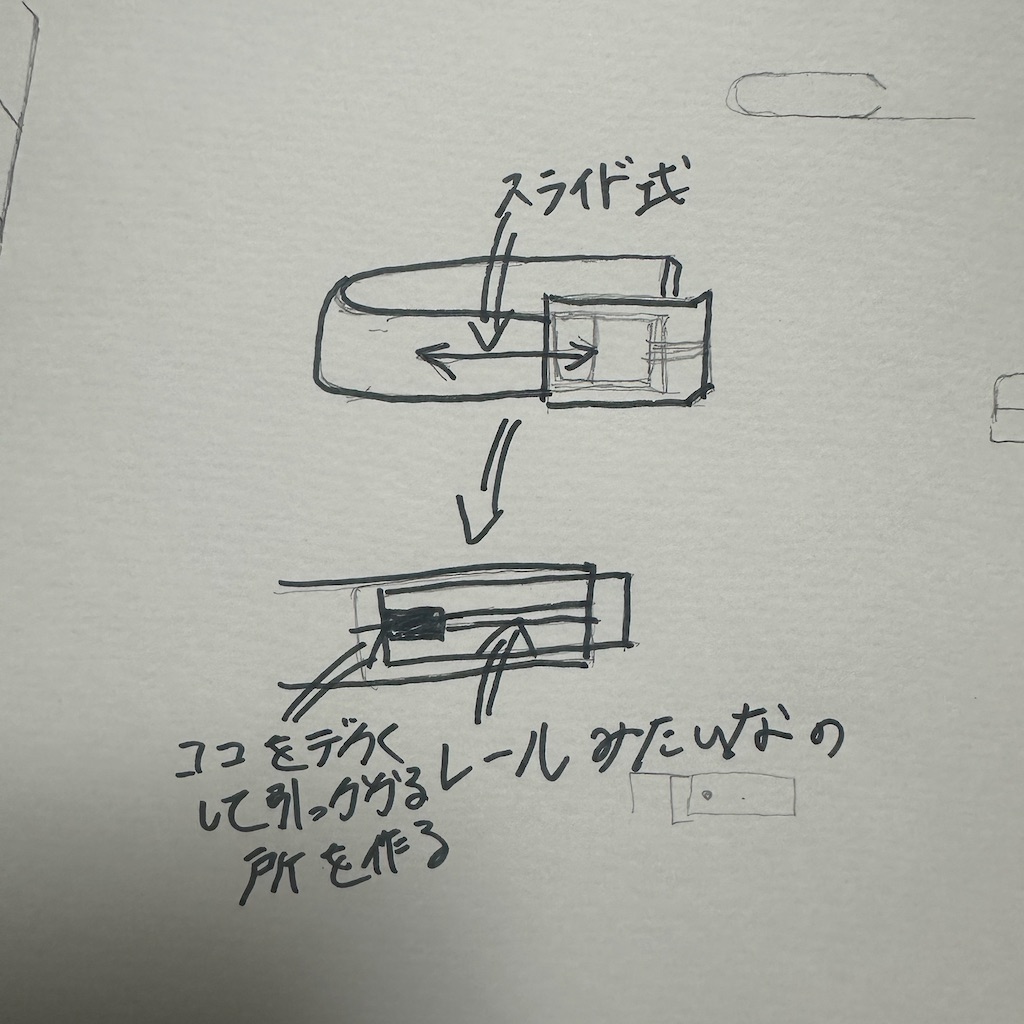 スライド式
ココをデカく
して引っかかる
所を作る
レールみたいなの